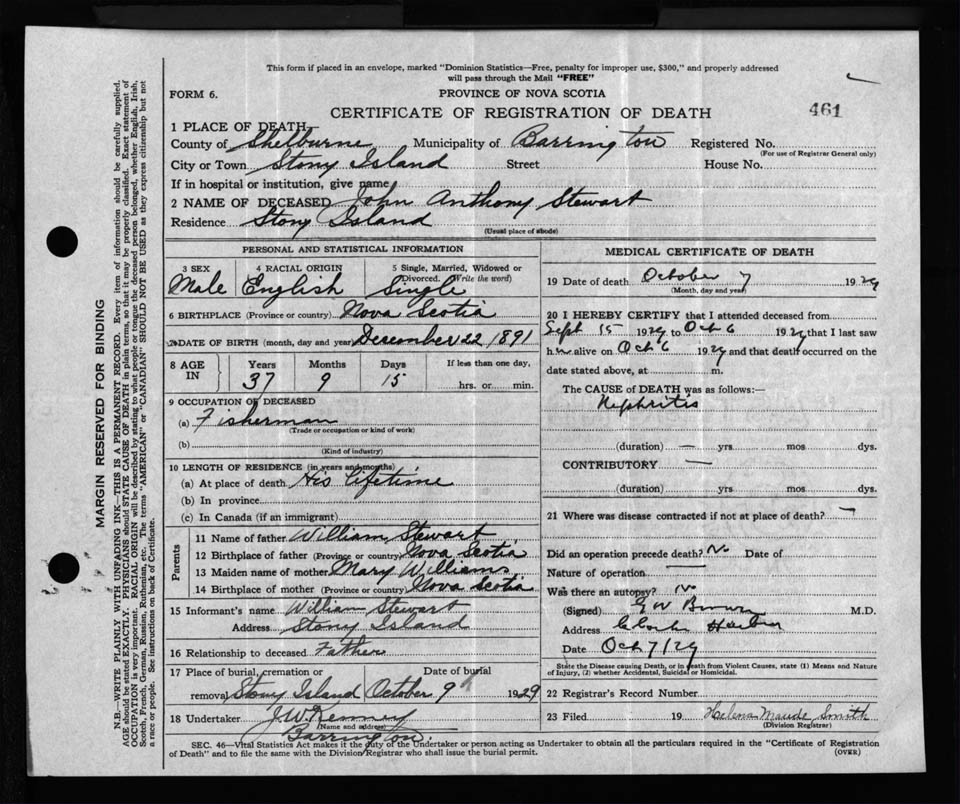 This form if placed in an envelope, marked "Dominion Statistics—Free, penalty for improper use, $300," and properly addressed
will pass through the Mail "FREE"
FORM 6.
PROVINCE OF NOVA SCOTIA
CERTIFICATE OF REGISTRATION OF DEATH
461
1 PLACE OF DEATH
County of Shelburne Municipality of Barrington Registered No.
(For use of Registrar General only)
City or Town Stony Island Street House No.
If in hospital or institution, give name
2 NAME OF DECEASED John Anthony Stewart
Residence Stony Island
(Usual place of abode)
PERSONAL AND STATISTICAL INFORMATION
3 SEX 4 RACIAL ORIGIN 5 Single, Married, Widowed or
Divorced. (Write the word)
Male English Single
6 BIRTHPLACE (Province or country) Nova Scotia
7 DATE OF BIRTH (month, day and year) Descember 22 1891
8 AGE IN Years Months Days If less than one day,
37 9 15 hrs. or min.
9 OCCUPATION OF DECEASED
(a) Fisherman
(Trade or occupation or kind of work)
(b)
(Kind of industry)
10 LENGTH OF RESIDENCE (in years and months)
(a) At place of death His Lifetime
(b) In province
(c) In Canada (if an immigrant)
Parents
11 Name of father William Stewart
12 Birthplace of father (Province or country) Nova Scotia
13 Maiden name of mother Mary Williams
14 Birthplace of mother (Province or country) Nova Scotia
15 Informant's name William Stewart
Address Stony Island
16 Relationship to deceased Father
17 Place of burial, cremation or Date of burial
removal Stony Island October 9 1929
18 Undertaker J.W. Kenney
(Name and address)
Barrington.
MEDICAL CERTIFICATE OF DEATH
19 Date of death October 7 1929
(Month, day and year)
20 I HEREBY CERTIFY that I attended deceased from
Sept 15 1929 to Oct 6 1929 that I last saw
him alive on Oct 6 1929 and that death occurred on the
date stated above, at m.
The CAUSE of DEATH was as follows:—
Nephritis
(duration) — yrs mos dys.
CONTRIBUTORY —
(duration) yrs mos dys.
21 Where was disease contracted if not at place of death? —
Did an operation precede death? No Date of
Nature of operation —
Was there an autopsy? No
(Signed) M.D.
Address Clarks Harbor
Date Oct 7/29
State the Disease causing Death, or in death from Violent Causes, state (1) Means and Nature
of Injury, (2) whether Accidental, Suicidal or Homicidal.
22 Registrar's Record Number
23 Filed 19 Helena Maude Smith
(Division Registrar)
SEC. 46—Vital Statistics Act makes it the duty of the Undertaker or person acting as Undertaker to obtain all the particulars required in the "Certificate of Registration
of Death" and to file the same with the Division Registrar who shall issue the burial permit.
(OVER)
MARGIN RESERVED FOR BINDING
N.B.—WRITE PLAINLY WITH UNFADING INK—THIS IS A PERMANENT RECORD. Every item of information should be carefully supplied.
AGE should be stated EXACTLY. PHYSICIANS should STATE CAUSE OF DEATH in plain terms, so that it may be properly classified. Exact statement of
OCCUPATION is very important. RACIAL ORIGIN will be described by stating to what people or tongue the deceased person belonged, whether English, Irish,
Scotch, French, German, Russian, Ruthenian, etc. The terms "AMERICAN" or "CANADIAN" SHOULD NOT BE USED as they express citizenship but not
a race or people. See instructions on back of Certificate.